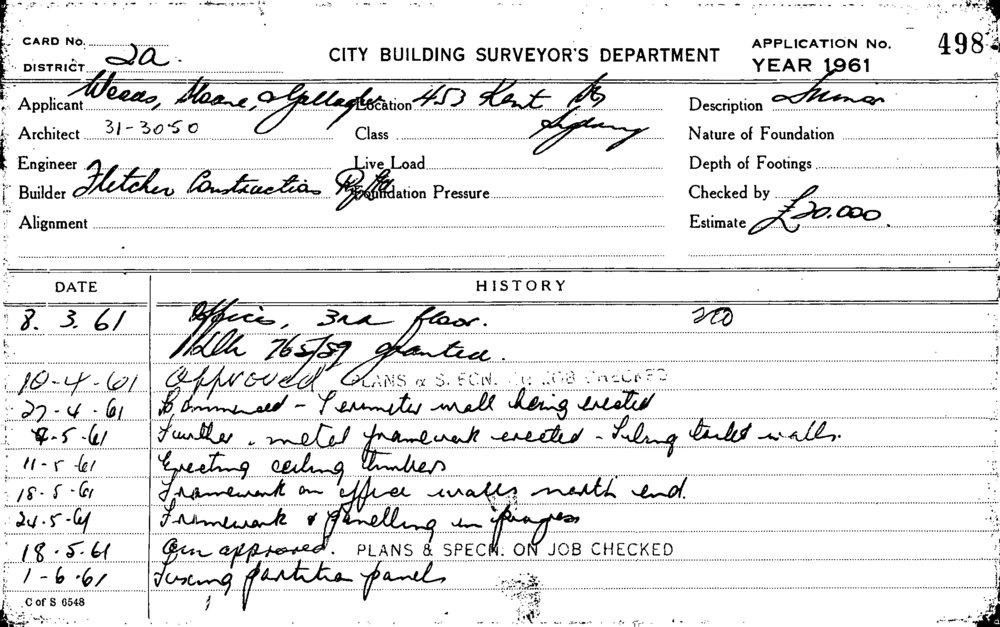 CARD No.
DISTRICT 2a.
CITY BUILDING SURVEYOR'S DEPARTMENT
APPLICATION No. 498
YEAR 1961
Applicant Sloane, & Gallagher Location 453 Kent St Sydney
Description
Architect 31-3050
Class
Nature of Foundation
Engineer
Live Load
Depth of Footings
Builder Fletcher Construction Pty Ltd
Foundation Pressure
Checked by
Alignment
Estimate £20.000.
DATE HISTORY
8. 3. 61 Offices, 3rd floor.
765/59 granted.
10-4-61 Approved PLANS & SPECN. ON JOB CHECKED
27-4-61 Commenced - Perimeter wall being erected
9-5-61 Further metal framework erected - toilet walls.
11-5-61 Erecting ceiling timbers
18-5-61 Framework on office walls north end.
24.5-61 Framework & panelling in progress
18.5.61 approved. PLANS & SPECN. ON JOB CHECKED
1-6-61 Fixing partition panels
C of S 6548